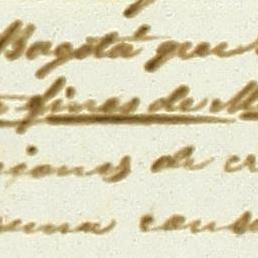 Bogotá que
fines de M
iones de cr
una cons